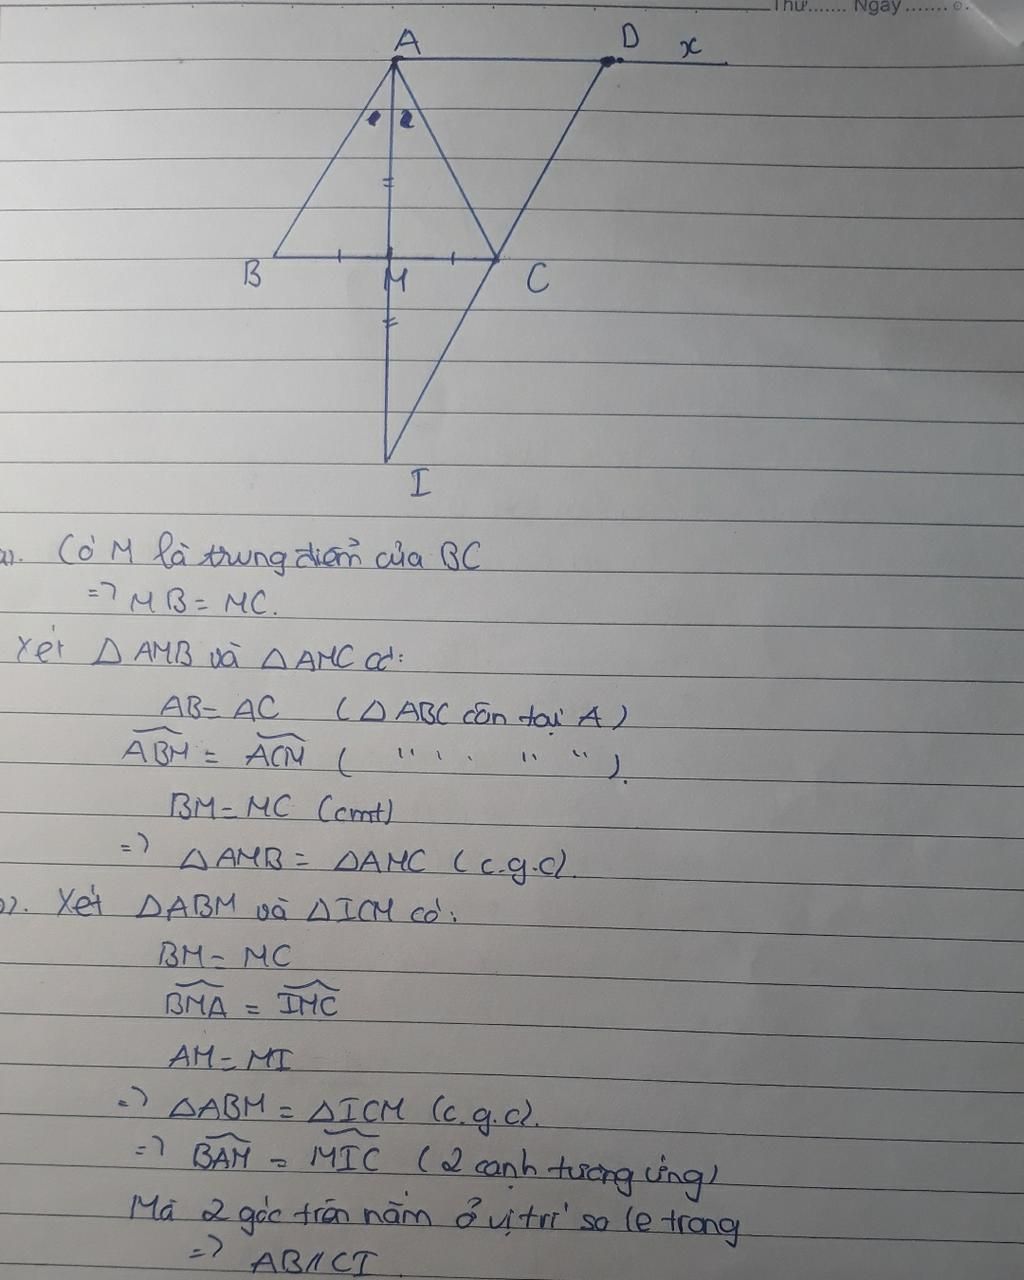 Thứ....... Ngày.......
A
D
x
1 2
B
M
C
I
a). Có M là trung điểm của BC
=> MB = MC.
Xét △AMB và △AMC có:
AB = AC (△ABC cân tại A)
ABM = ACM ( " " " " ).
BM = MC (cmt)
=> △AMB = △AMC (c.g.c).
b). Xét △ABM và △ICM có:
BM = MC
BMA = IMC
AM = MI
=> △ABM = △ICM (c.g.c).
=> BAM = MIC (2 cạnh tương ứng)
Mà 2 góc trên nằm ở vị trí so le trong
=> AB // CI.